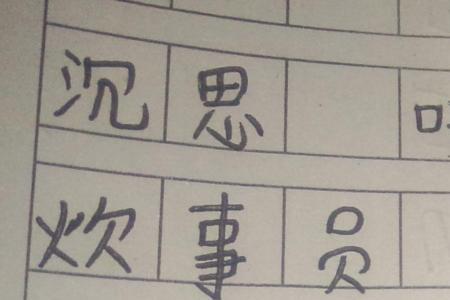 沉思
炊事员